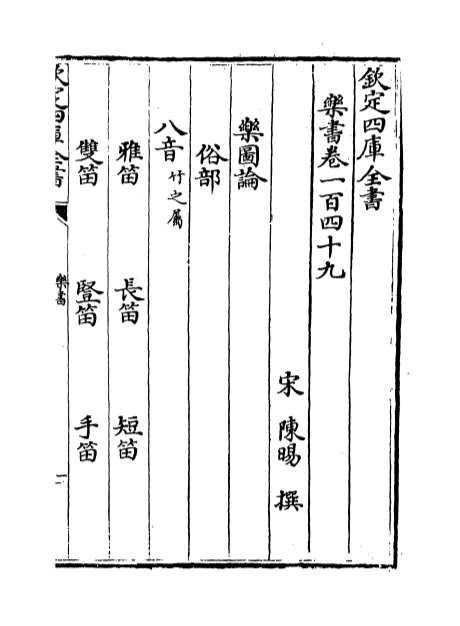 欽定四庫全書
樂書卷一百四十九
宋 陳暘 撰
樂圖論
俗部
八音 竹之屬
雅笛 長笛 短笛
雙笛 豎笛 手笛
樂書